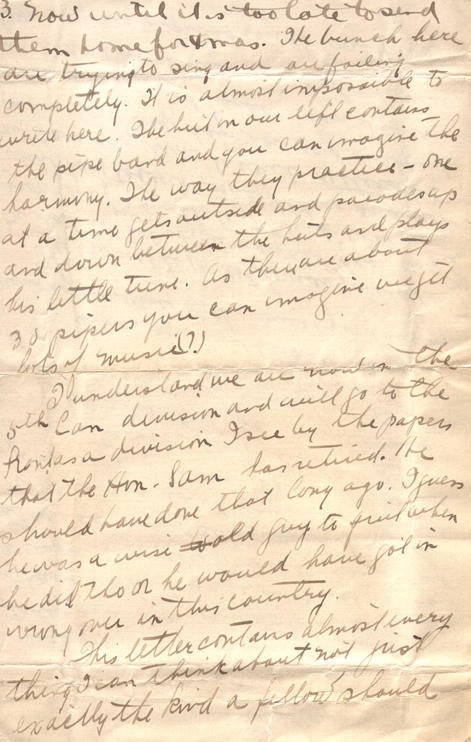 3. Now until it is too late to send
them home for Xmas. The bunch here
are trying to sing and are failing
completely. It is almost impossible to
write here. The hut on our left contains
the pipe band and you can imagine the
harmony. The way they practice - one
at a time gets outside and parades up
and down between the huts and plays
his little tune. As they are about
30 pipers you can imagine we get
lots of music(?)
I understand we are now in the
5th Can division and will go to the
front as a division I see by the papers
that the Hon. Sam has retired. He
should have done that long ago. I guess
he was a wise old guy to quit when
he did tho or he would have got in
wrong over in this country.
This letter contains almost every
thing I can think about not just
exactly the kind a fellow should